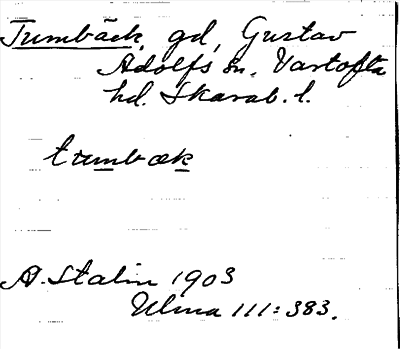 Tumbäck, gd, Gustav
Adolfs sn. Vartofta
hd. Skarab. l.
tumbæk
A. Stalin 1903
Ulma 111: 383.